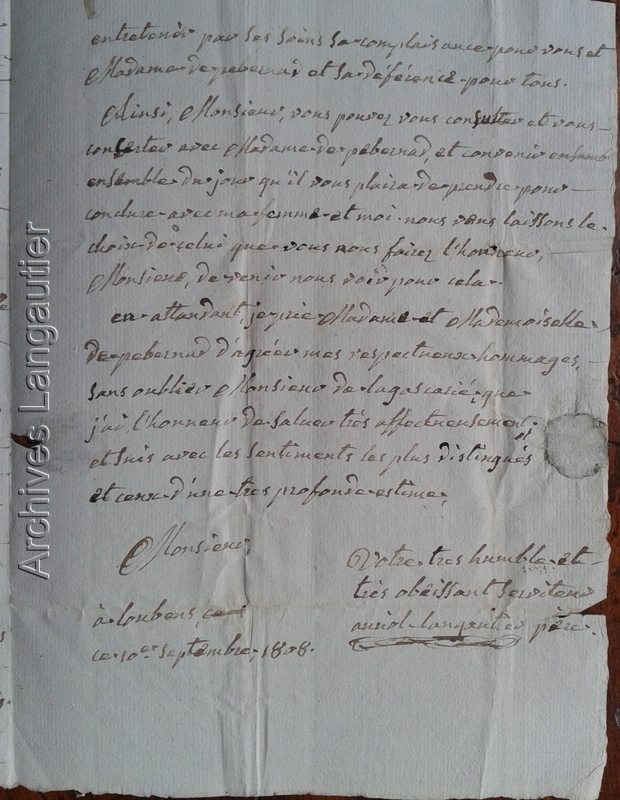 entretenir par ses soins sa complaisance pour vous et
Madame de pebernad et sa déférence pour tous.
Ainsi, Monsieur, vous pouvez vous consulter et vous
concerter avec Madame de pebernad, et convenir
ensemble du jour qu'il vous plaira de prendre pour
conclure avec ma femme et moi. nous vous laissons le
choix de celui que vous nous fairez l'honneur,
Monsieur, de venir nous voir pour cela.
en attandant je prie Madame et Mademoiselle
de pebernad d'agréer mes respectueux hommages,
sans oublier Monsieur de que
j'ai l'honneur de saluer très affectueusement.
et suis avec les sentiments les plus distingués
et ceux d'une tres profonde estime,
Monsieur,
Votre tres humble et
très obéissant serviteur
auriol-langautier père.
à loubens
ce 10er septembre, 1808.
Archives Langautier